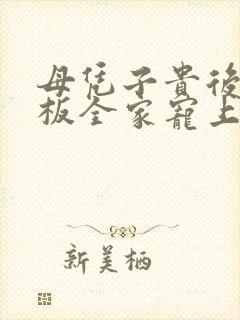 母凭子貴後
板全家寵上
新美栖